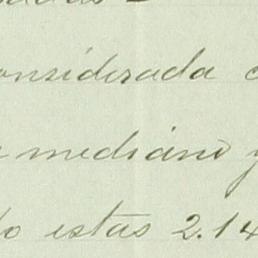 considerada
mediano y
estas 2.14